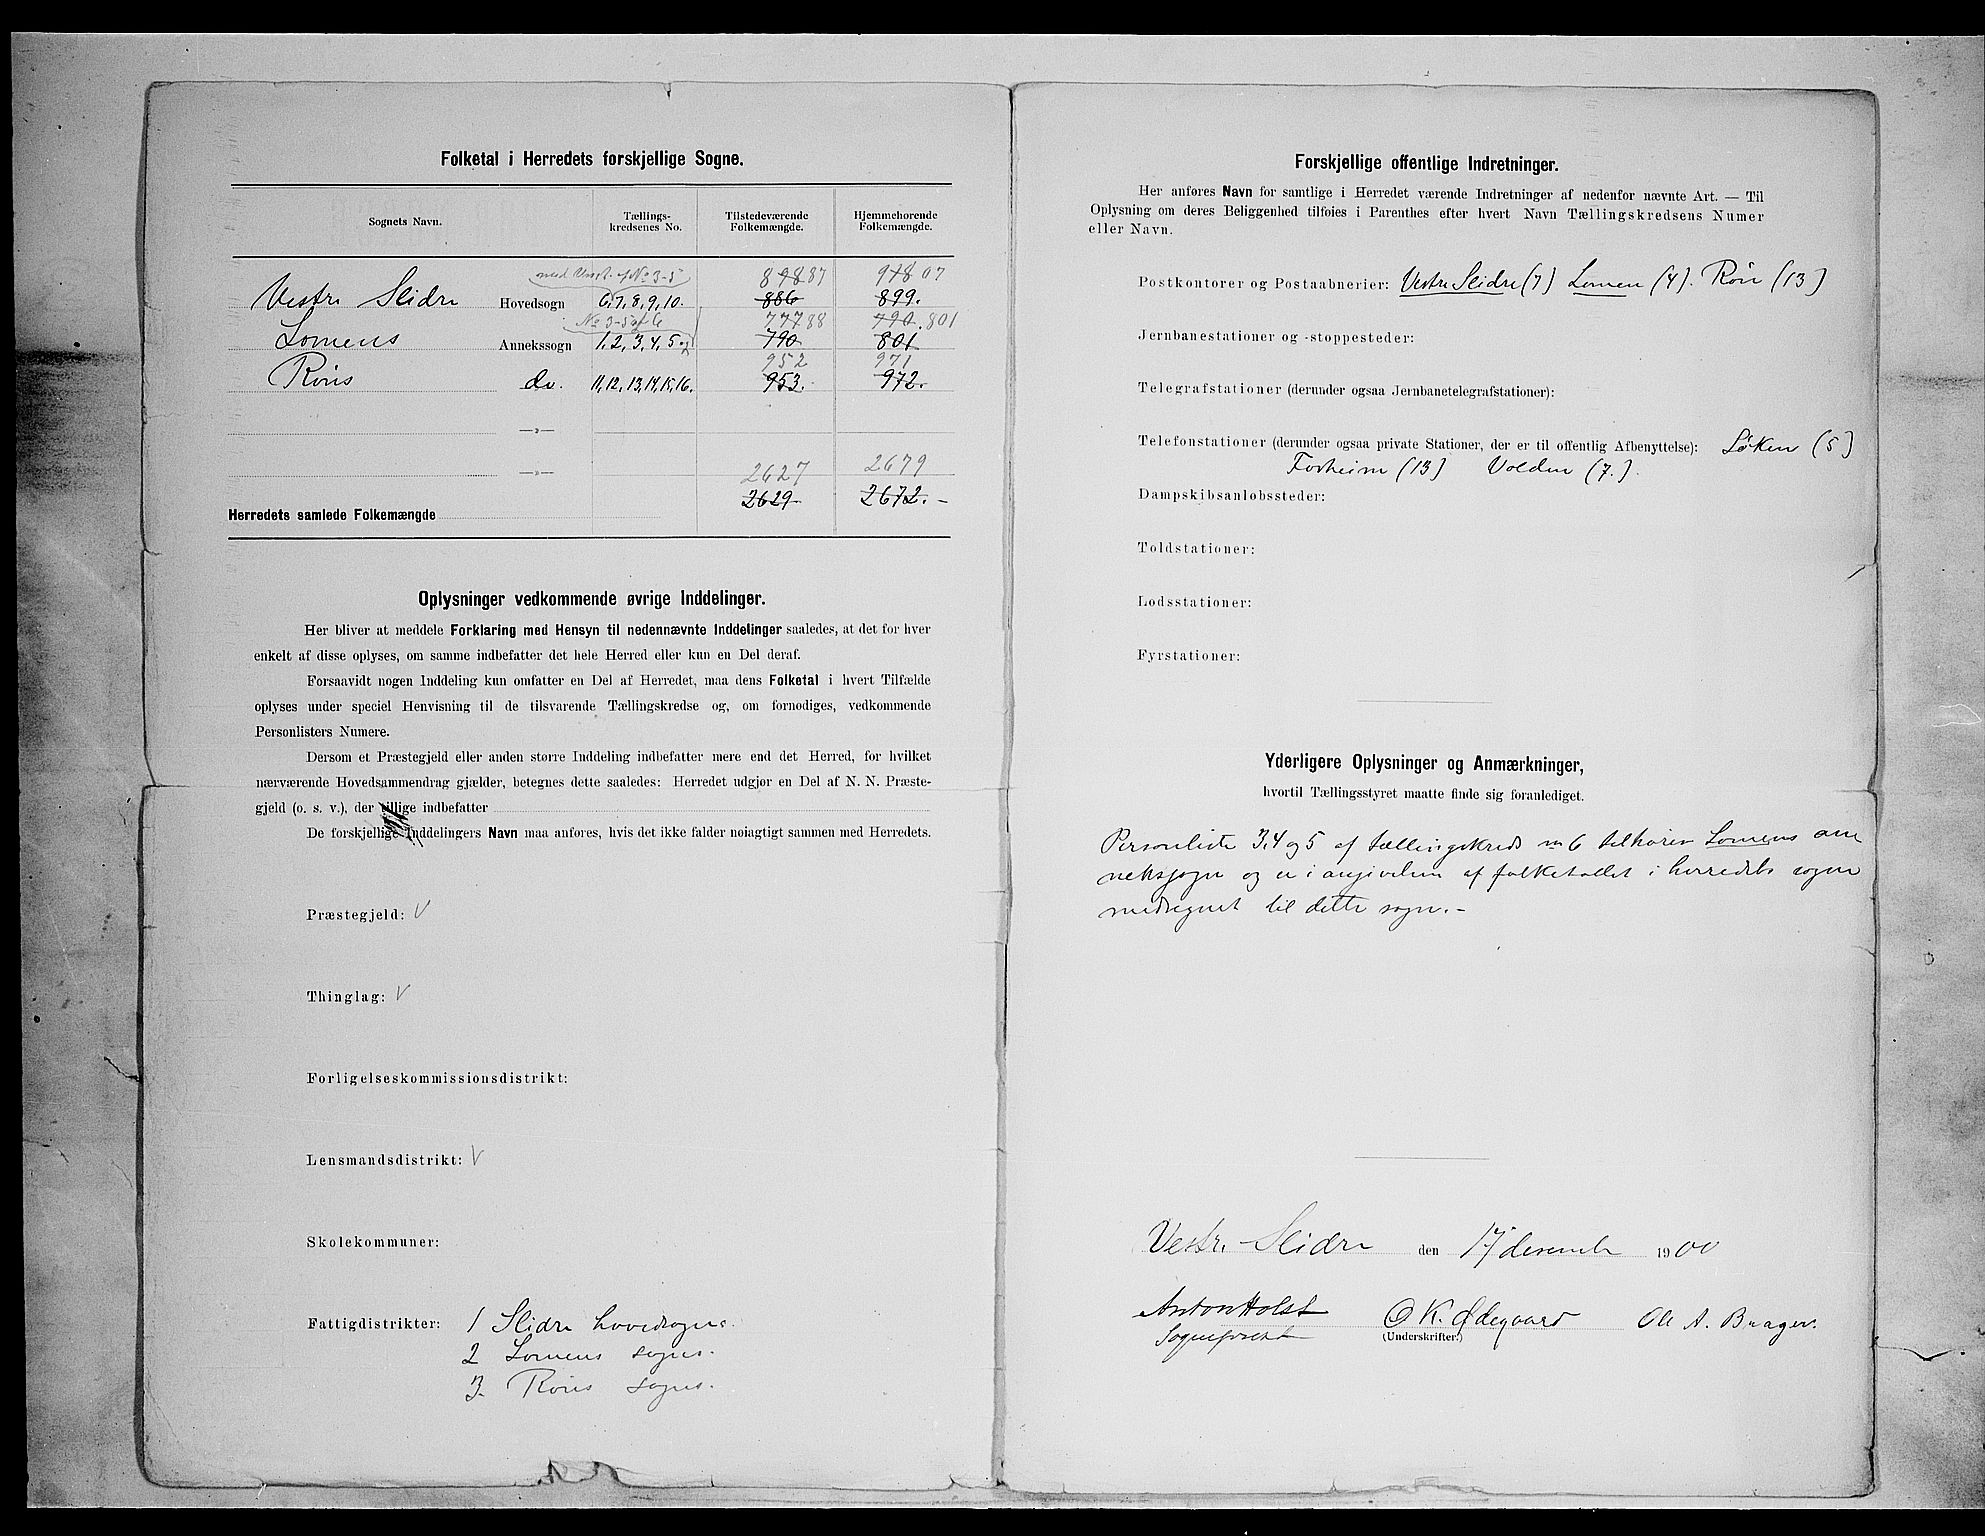 Folketal i Herredets forskjellige Sogne.
Sognets Navn. Tællings-kredsenes No. Tilstedeværende Folkemængde. Hjemmehørende Folkemængde.
No 3-5 89887 97807
Vestre Slidre Hovedsogn 6,7,8,9,10. 886 899.
No 3-5 af 6 77788 790.801
Lomens Annekssogn 1,2,3,4,5 790 801
952 971
Røns do. 11,12,13,14,15,16. 953. 972.
—»—
—»— 2627 2679
Herredets samlede Folkemængde 2629 2672.-
Oplysninger vedkommende øvrige Inddelinger.
Her bliver at meddele Forklaring med Hensyn til nedennævnte Inddelinger saaledes, at det for hver
enkelt af disse oplyses, om samme indbefatter det hele Herred eller kun en Del deraf.
Forsaavidt nogen Inddeling kun omfatter en Del af Herredet, maa dens Folketal i hvert Tilfælde
oplyses under speciel Henvisning til de tilsvarende Tællingskredse og, om fornødiges, vedkommende
Personlisters Numere.
Dersom et Præstegjeld eller anden større Inddeling indbefatter mere end det Herred, for hvilket
nærværende Hovedsammendrag gjælder, betegnes dette saaledes: Herredet udgjør en Del af N. N. Præste-
gjeld (o. s. v.), der tillige indbefatter
De forskjellige Inddelingers Navn maa anføres, hvis det ikke falder nøiagtigt sammen med Herredets.
Præstegjeld: V
Thinglag: V
Forligelseskommissionsdistrikt:
Lensmandsdistrikt: V
Skolekommuner:
Fattigdistrikter: 1 Slidre hovedsogn.
2 Lomens sogns.
3. Røns sogns.
Forskjellige offentlige Indretninger.
Her anføres Navn for samtlige i Herredet værende Indretninger af nedenfor nævnte Art. — Til
Oplysning om deres Beliggenhed tilføies i Parenthes efter hvert Navn Tællingskredsens Numer
eller Navn.
Postkontorer og Postaabnerier: Vestre Slidre (7) Lomen (4). Røn (13)
Jernbanestationer og -stoppesteder:
Telegrafstationer (derunder ogsaa Jernbanetelegrafstationer):
Telefonstationer (derunder ogsaa private Stationer, der er til offentlig Afbenyttelse): Løken (5)
Fosheim (13) Volden (7.).
Dampskibsanløbssteder:
Toldstationer:
Lodsstationer:
Fyrstationer:
Yderligere Oplysninger og Anmærkninger,
hvortil Tællingsstyret maatte finde sig foranlediget.
Personliste 3,4 og 5 af tællingskreds no 6 tilhører Lomens an
nekssogn og er i angivelsen af folketallet i herredets sogne
medregnet til dette sogn.-
Vestr. Slidre den 17 desember 1900
Anton Holst O K. Ødegaard Ole A. Brager.
Sogneprest (Underskrifter.)